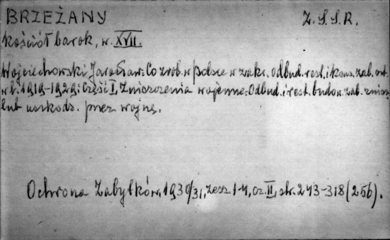 BRZEŻANY Z.S.S.R.
kościół barok, w. XVII.
Wojciechowski Jarosław: Co zrob. w Polsce w zakr. odbud. rest. i kons. zab. art.
w l. 1919-1929: Część I, Zniszczenia wojenne. Odbud. i rest. budow. zab. zniszcz.
lub uszkodz. przez wojnę.
Ochrona Zabytków, 1930/31, zesz. 1-4, cz. II, str. 243-318 (256).